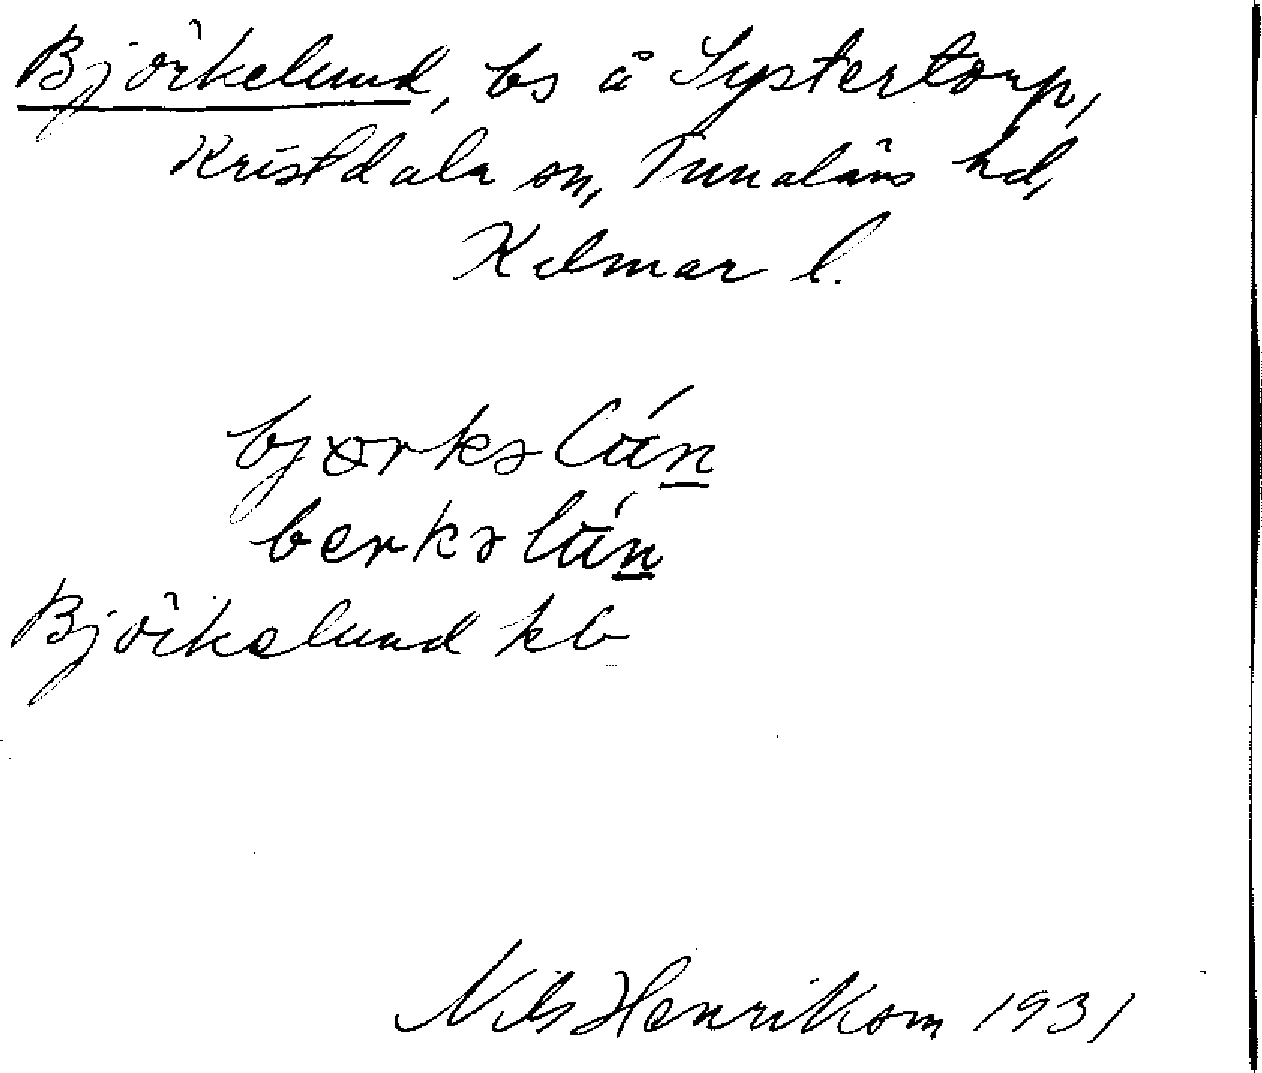 Björkelund, bs å Systertorp,
Kristdala sn, Tunaläns hd,
Kalmar l.
bjørkəlún
berkəlún
Björkelund kb
Nils Henrikson 1931